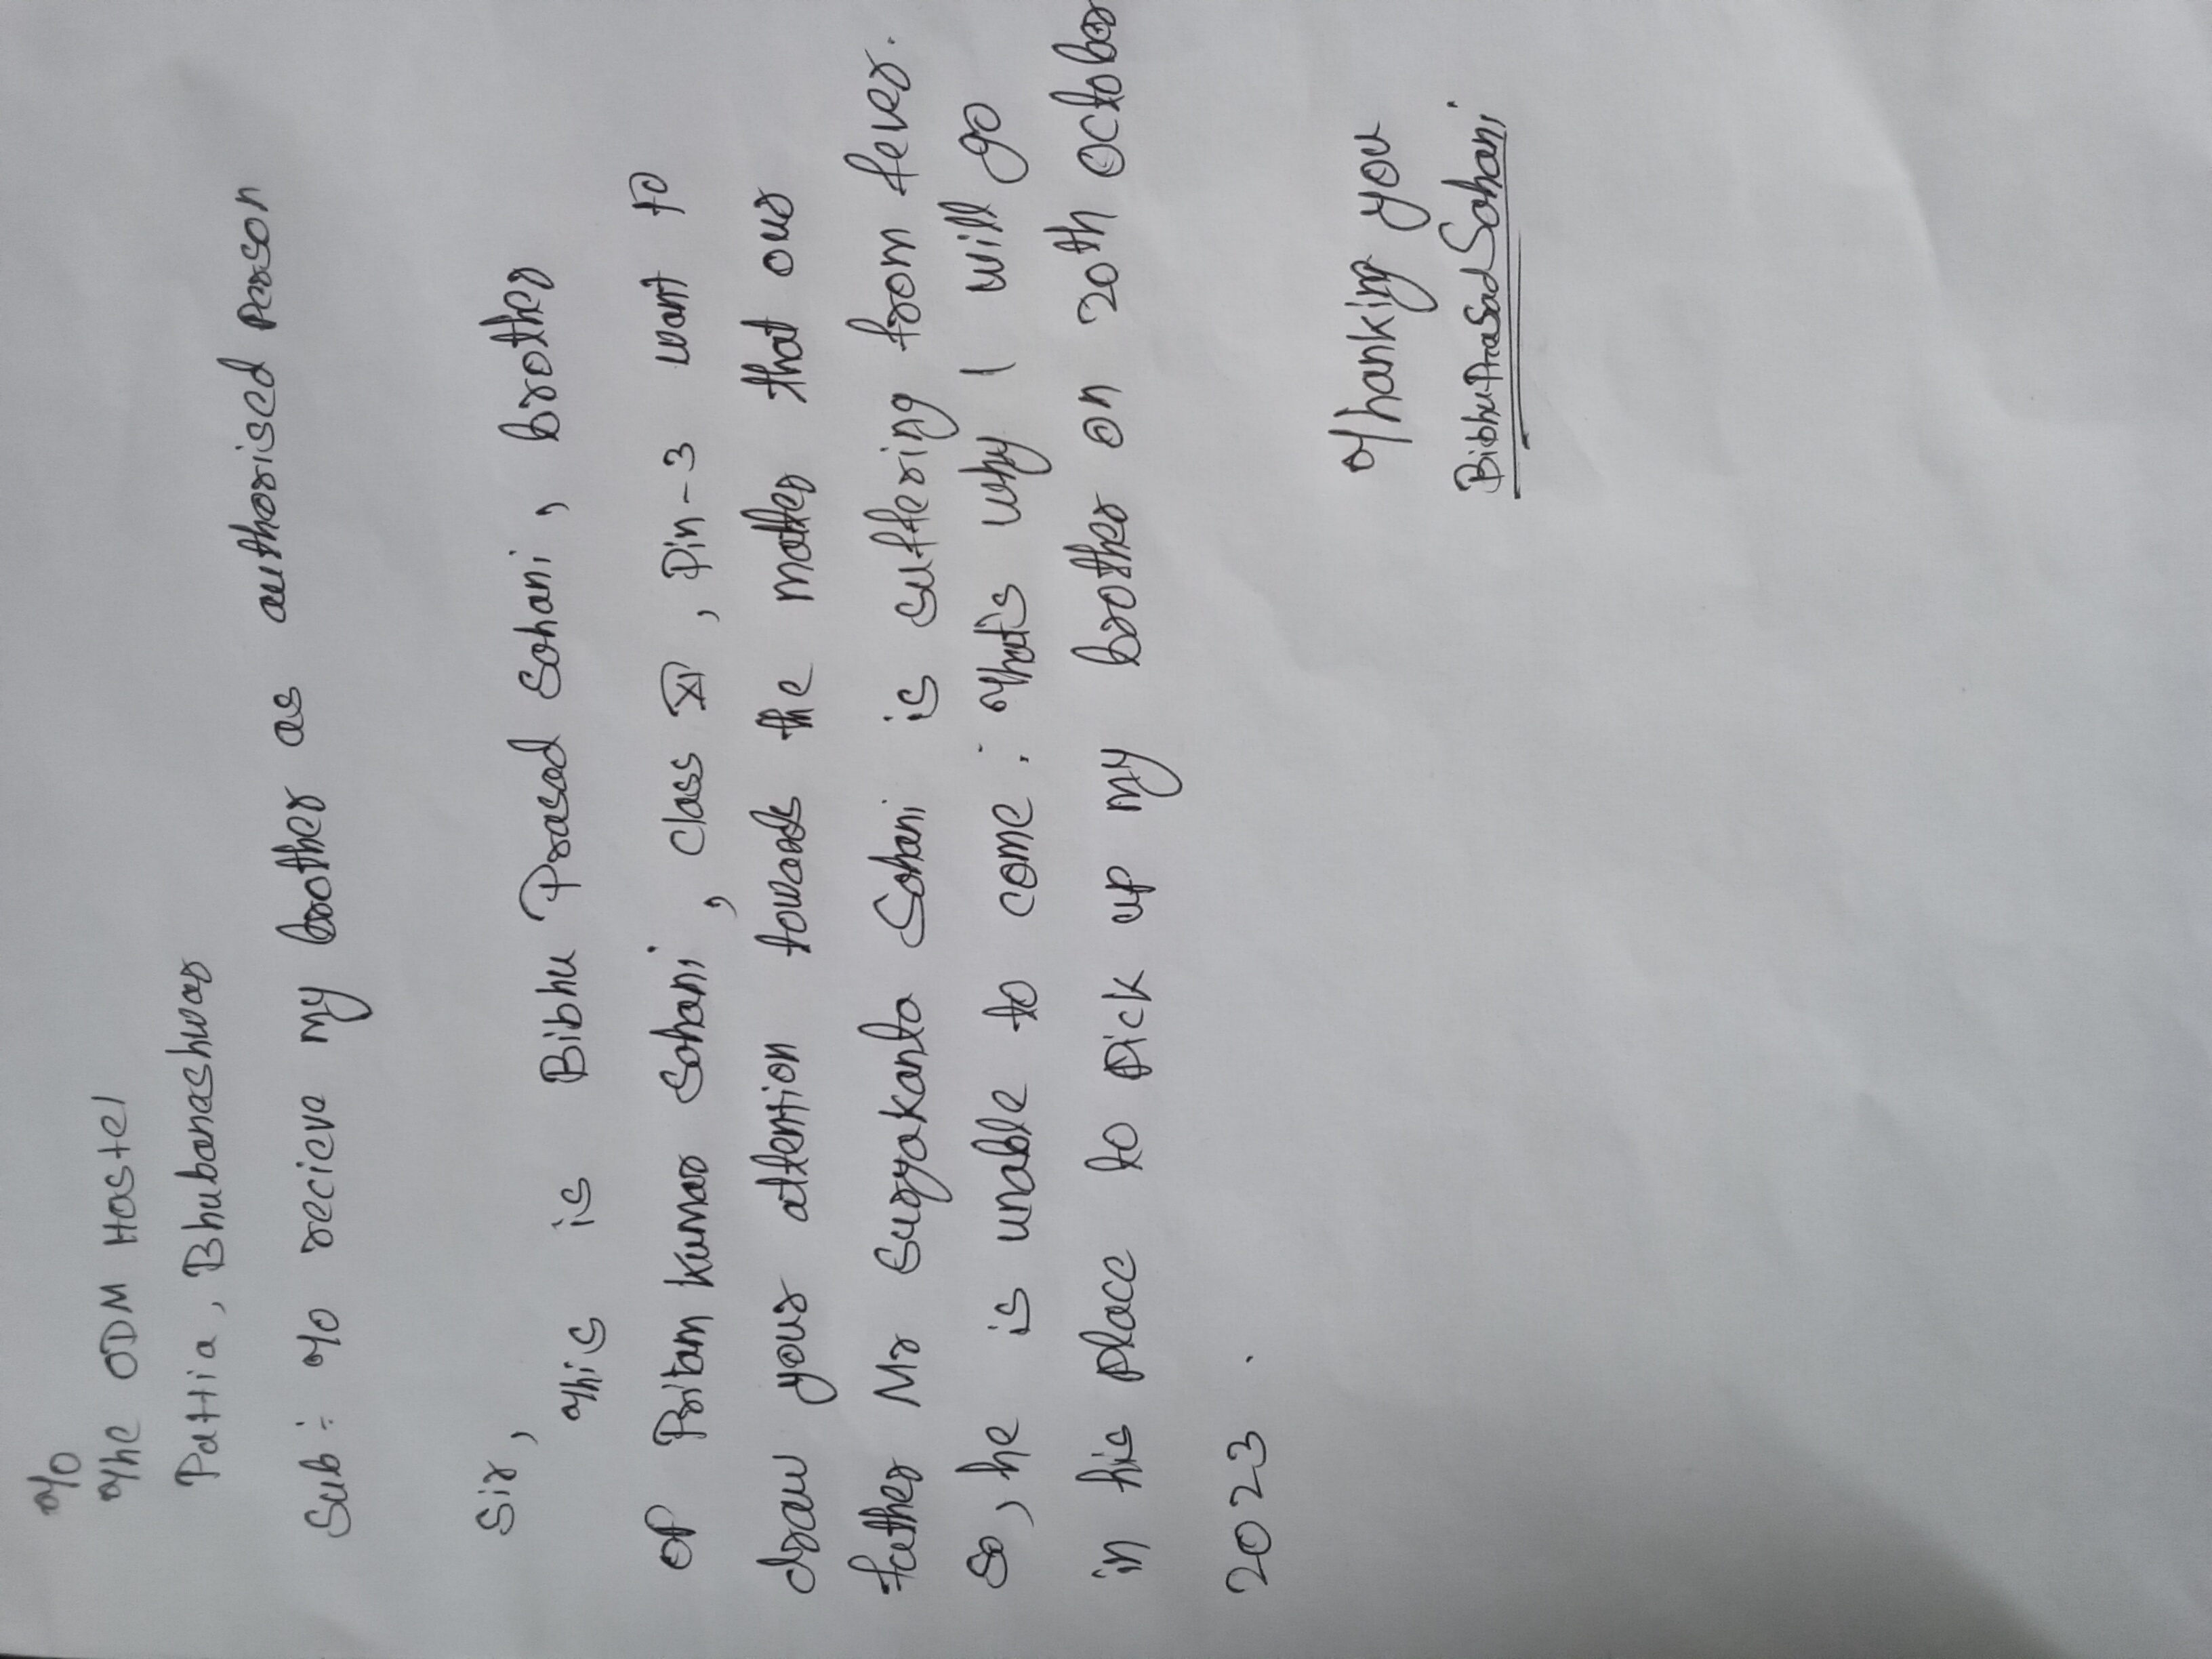 To
The ODM Hostel
Pattia, Bhubanashwar
Sub:- To recieve my brother as authorised person
Sir,
This is Bibhu Prasad Sohani, brother
of Pritam Kumar Sohani, Class XI, Pin-3 want to
draw your attention towards the matter that our
father Mr Suryakanta Sohani is suffering from fever.
So, he is unable to come. That's why I will go
in his place to pick up my brother on 20th October
2023.
Thanking you
Bibhu Prasad Sohani